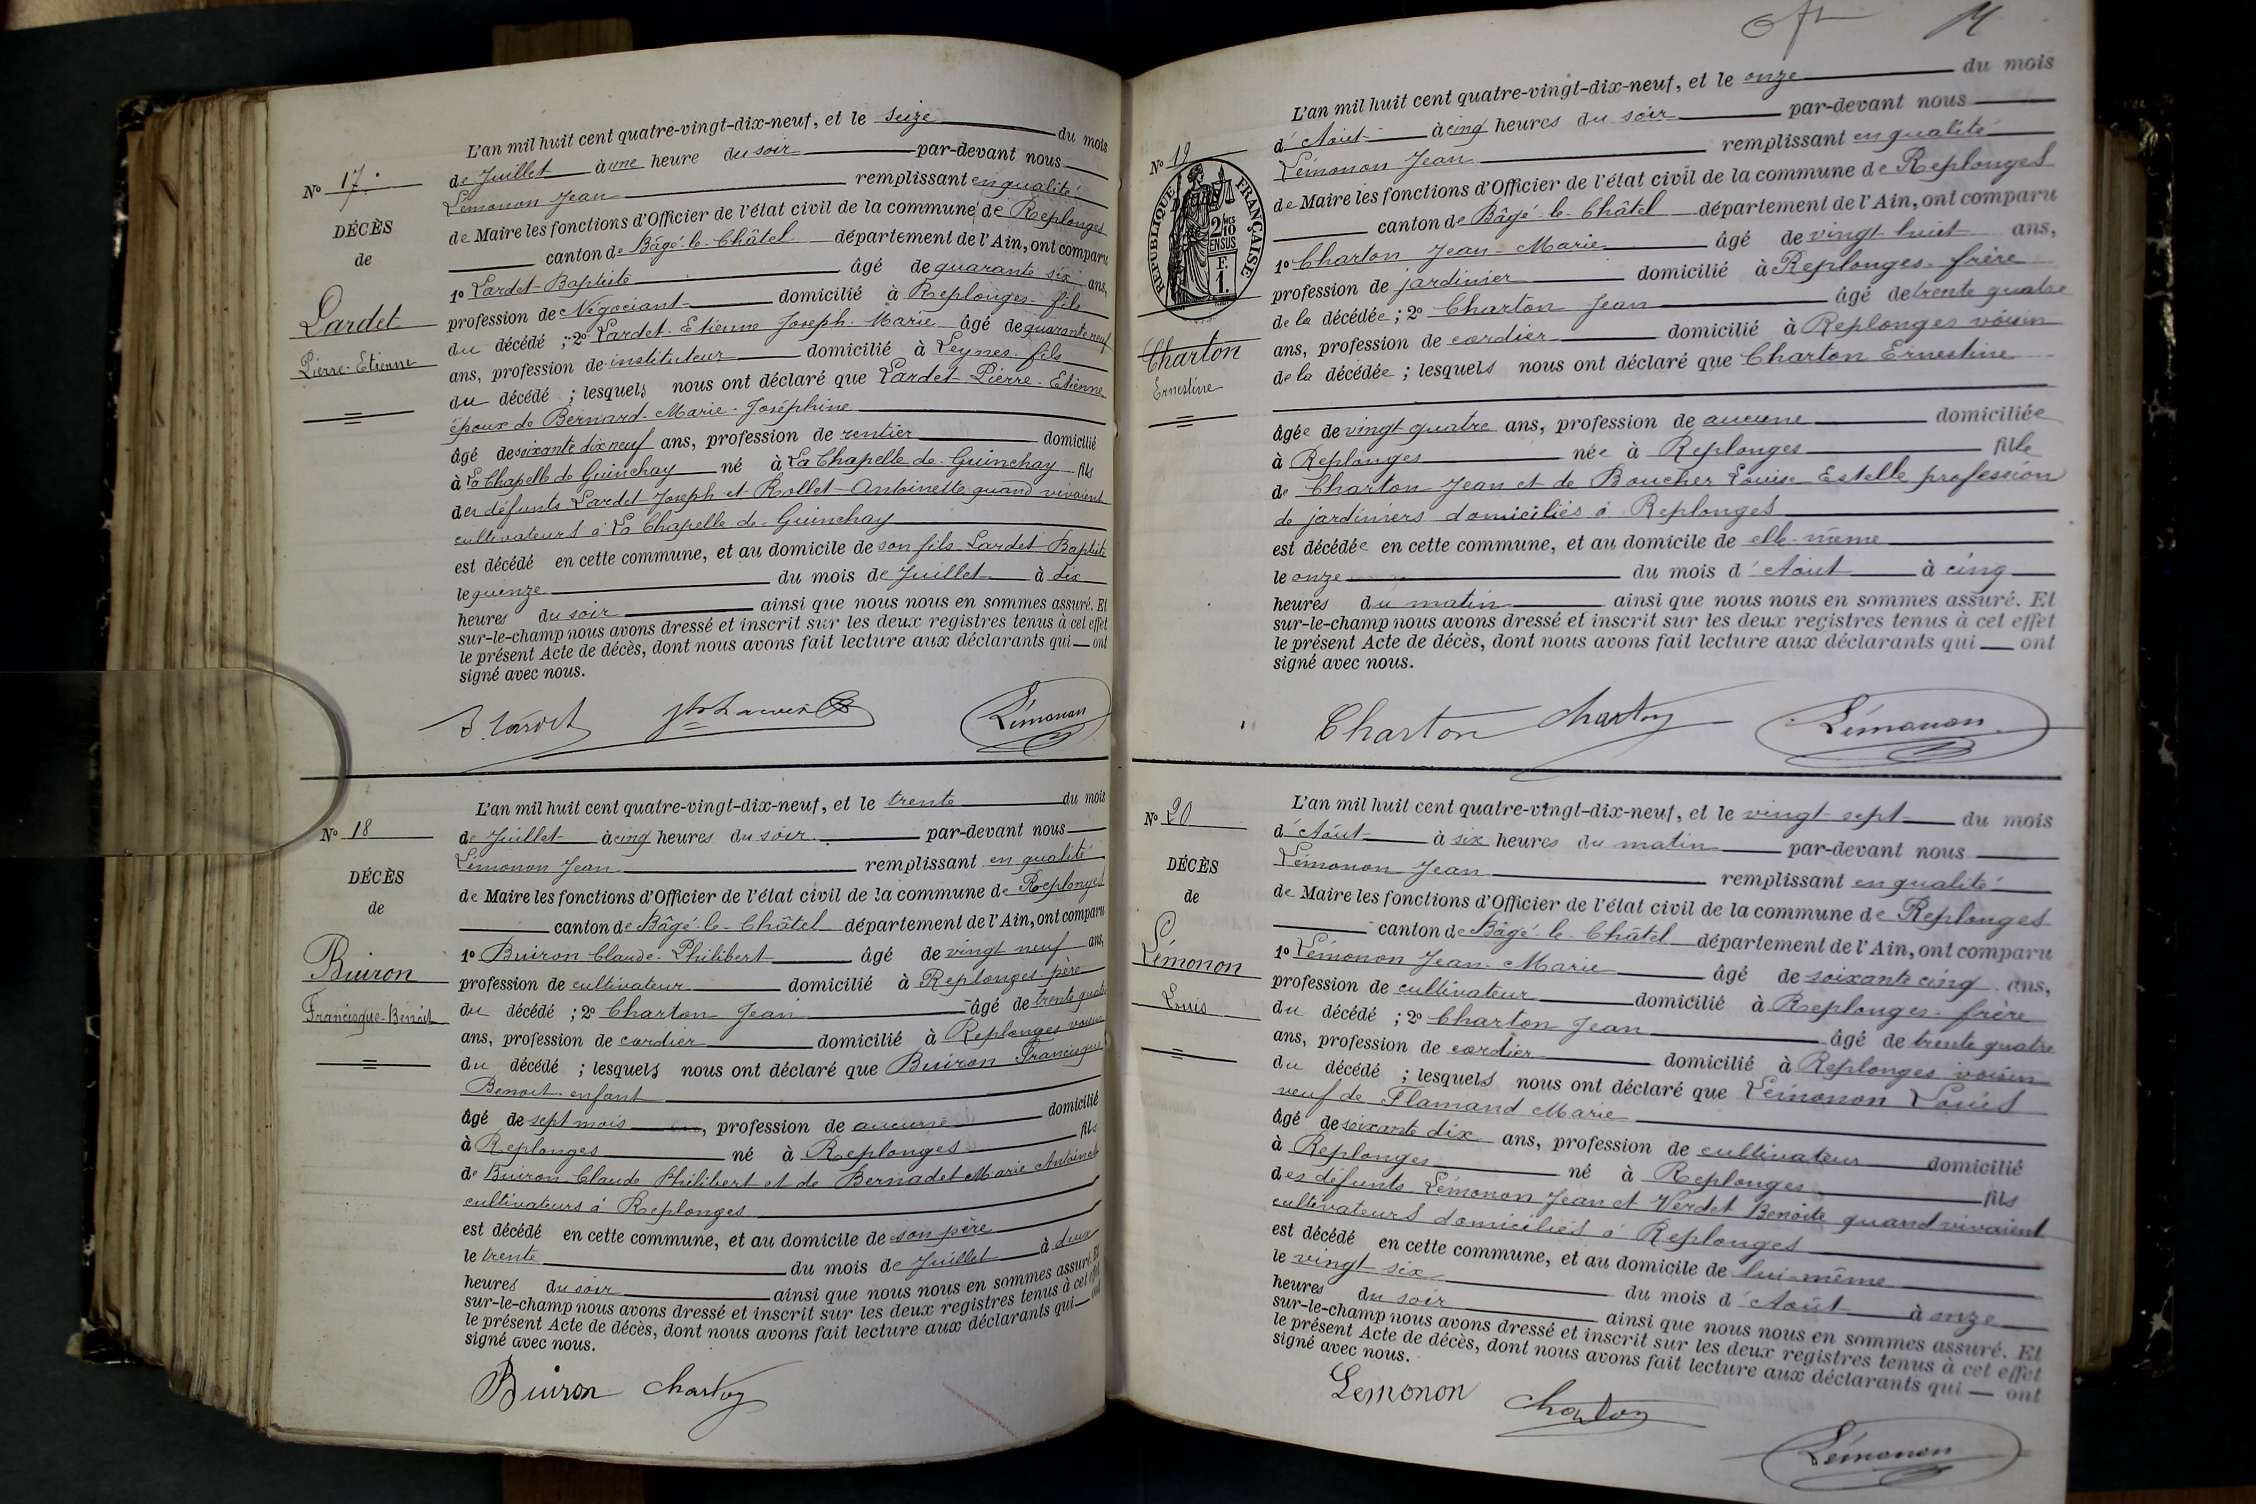 Nº 17.
DÉCÈS
de
Lardet
Pierre-Etienne
L'an mil huit cent quatre-vingt-dix-neuf, et le seize du mois
de Juillet à une heure du soir par-devant nous
Lémonon Jean remplissant en qualité
de Maire les fonctions d'Officier de l'état civil de la commune de Replonges
canton de Bâgé-le-Châtel département de l'Ain, ont comparu
1º Lardet Baptiste âgé de quarante six ans,
profession de Négociant domicilié à Replonges fils
du décédé ; 2º Lardet Etienne Joseph Marie âgé de quarante neuf
ans, profession de instituteur domicilié à Leynes fils
du décédé ; lesquels nous ont déclaré que Lardet Pierre-Etienne
époux de Bernard Marie-Joséphine
âgé de soixante dix neuf ans, profession de rentier domicilié
à La Chapelle de Guinchay né à La Chapelle de Guinchay fils
des défunts Lardet Joseph et Rollet Antoinette quand vivaient
cultivateurs à La Chapelle de Guinchay
est décédé en cette commune, et au domicile de son fils Lardet Baptiste
le quinze du mois de Juillet à dix
heures du soir ainsi que nous nous en sommes assuré. Et
sur-le-champ nous avons dressé et inscrit sur les deux registres tenus à cet effet
le présent Acte de décès, dont nous avons fait lecture aux déclarants qui ont
signé avec nous.
B. Lardet Lémonon
Nº 18
DÉCÈS
de
Buiron
Francisque-Benoit
L'an mil huit cent quatre-vingt-dix-neuf, et le trente du mois
de Juillet à cinq heures du soir par-devant nous
Lémonon Jean remplissant en qualité
de Maire les fonctions d'Officier de l'état civil de la commune de Replonges
canton de Bâgé-le-Châtel département de l'Ain, ont comparu
1º Buiron Claude-Philibert âgé de vingt neuf ans,
profession de cultivateur domicilié à Replonges père
du décédé ; 2º Charton Jean âgé de trente quatre
ans, profession de cordier domicilié à Replonges voisin
du décédé ; lesquels nous ont déclaré que Buiron Francisque
Benoit enfant
âgé de sept mois ans, profession de aucune domicilié
à Replonges né à Replonges fils
de Buiron Claude Philibert et de Bernadet Marie Antoinette
cultivateurs à Replonges
est décédé en cette commune, et au domicile de son père
le trente du mois de Juillet à deux
heures du soir ainsi que nous nous en sommes assuré. Et
sur-le-champ nous avons dressé et inscrit sur les deux registres tenus à cet effet
le présent Acte de décès, dont nous avons fait lecture aux déclarants qui ont
signé avec nous.
Buiron Charton
Nº 19
RÉPUBLIQUE FRANÇAISE
2/10
EN SUS
F.
1.
Charton
Ernestine
L'an mil huit cent quatre-vingt-dix-neuf, et le onze du mois
d'Août à cinq heures du soir par-devant nous
Lémonon Jean remplissant en qualité
de Maire les fonctions d'Officier de l'état civil de la commune de Replonges
canton de Bâgé-le-Châtel département de l'Ain, ont comparu
1º Charton Jean-Marie âgé de vingt huit ans,
profession de jardinier domicilié à Replonges frère
de la décédée ; 2º Charton Jean âgé de trente quatre
ans, profession de cordier domicilié à Replonges voisin
de la décédée ; lesquels nous ont déclaré que Charton Ernestine
âgée de vingt quatre ans, profession de aucune domiciliée
à Replonges née à Replonges fille
de Charton Jean et de Boucher Louise Estelle profession
de jardiniers domiciliés à Replonges
est décédée en cette commune, et au domicile de elle-même
le onze du mois d'Août à cinq
heures du matin ainsi que nous nous en sommes assuré. Et
sur-le-champ nous avons dressé et inscrit sur les deux registres tenus à cet effet
le présent Acte de décès, dont nous avons fait lecture aux déclarants qui ont
signé avec nous.
Charton Charton Lémonon
Nº 20
DÉCÈS
de
Lémonon
Louis
L'an mil huit cent quatre-vingt-dix-neuf, et le vingt sept du mois
d'Août à six heures du matin par-devant nous
Lémonon Jean remplissant en qualité
de Maire les fonctions d'Officier de l'état civil de la commune de Replonges
canton de Bâgé-le-Châtel département de l'Ain, ont comparu
1º Lémonon Jean-Marie âgé de soixante cinq ans,
profession de cultivateur domicilié à Replonges frère
du décédé ; 2º Charton Jean âgé de trente quatre
ans, profession de cordier domicilié à Replonges voisin
du décédé ; lesquels nous ont déclaré que Lémonon Louis
veuf de Flamand Marie
âgé de soixante dix ans, profession de cultivateur domicilié
à Replonges né à Replonges fils
des défunts Lémonon Jean et Verdet Benoite quand vivaient
cultivateurs domiciliés à Replonges
est décédé en cette commune, et au domicile de lui-même
le vingt six du mois d'Août à onze
heures du soir ainsi que nous nous en sommes assuré. Et
sur-le-champ nous avons dressé et inscrit sur les deux registres tenus à cet effet
le présent Acte de décès, dont nous avons fait lecture aux déclarants qui ont
signé avec nous.
Lemonon Charton
Lémonon